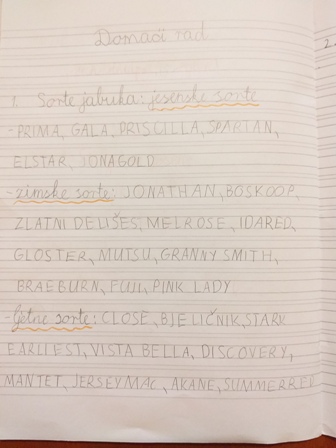 Domaći rad
1. Sorte jabuka: jesenske sorte
- PRIMA, GALA, PRISCILLA, SPARTAN,
ELSTAR, JONAGOLD
- zimske sorte: JONATHAN, BOSKOOP,
ZLATNI DELIŠES, MELROSE, IDARED,
GLOSTER, MUTSU, GRANNY SMITH,
BRAEBURN, FUJI, PINK LADY
- ljetne sorte: CLOSE, BJELIČNIK, STARK
EARLIEST, VISTA BELLA, DISCOVERY,
MANTET, JERSEYMAC, AKANE, SUMMERRED
2.